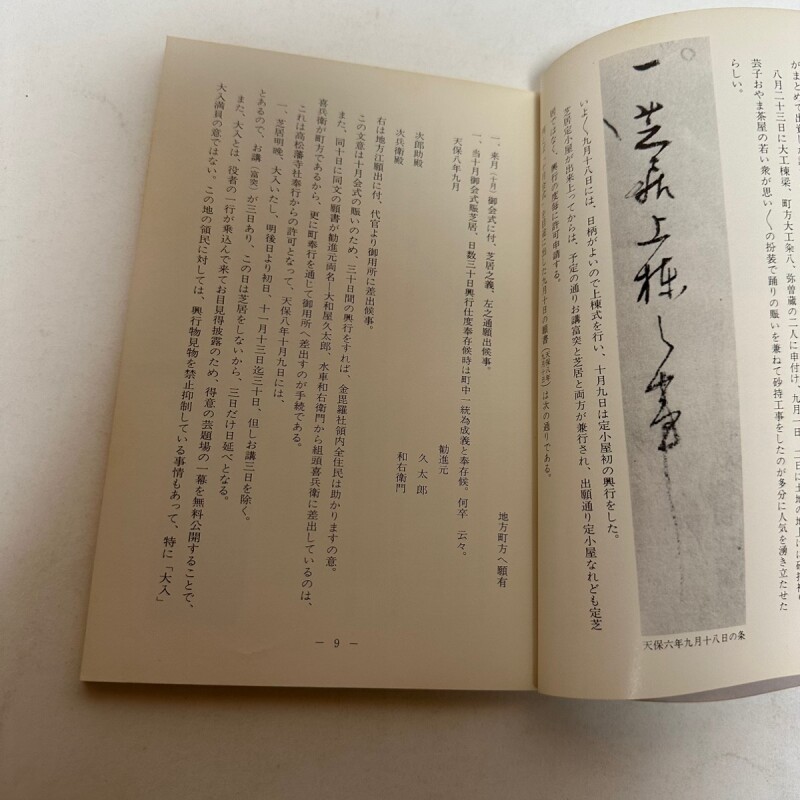 八月二十三日に大工棟梁、町方大工条八、弥曽蔵の二人に申付け、九月一日、二日に
芸子おやま茶屋の若い衆が思い〳〵の扮装で踊りの賑いを兼ねて砂持工事をしたのが多分に人気を湧き立たせた
らしい。
一 芝居上棟之事
天保六年九月十八日の条
いよ〳〵九月十八日には、日柄がよいので上棟式を行い、十月九日は定小屋初の興行をした。
芝居定小屋が出来上ってからは、予定の通りお講富突と芝居と両方が兼行され、出願通り定小屋なれども定芝
居ではなく、興行の度毎に許可申請する。
九月十日の願書(天保八年)は次の通りである。
地方町方へ願有
一、来月(十月)御会式に付、芝居之義、左之通願出候事。
一、当十月御会式賑芝居、日数三十日興行仕度奉存候時は町中一統為成義と奉存候。何卒 云々。
天保八年九月
勧進元
久太郎
和右衛門
次郎助殿
次兵衛殿
右は地方江願出に付、代官より御用所に差出候事。
この文意は十月会式の賑いのため、三十日間の興行をすれば、金毘羅社領内全住民は助かりますの意。
また、同十日に同文の願書が勧進元両名―大和屋久太郎、水車和右衛門から組頭喜兵衛に差出しているのは、
喜兵衛が町方であるから、更に町奉行を通じて御用所へ差出すのが手続である。
これは高松藩寺社奉行からの許可となって、天保八年十月九日には、
一、芝居明晩、大入いたし、明後日より初日、十一月十三日迄三十日、但しお講三日を除く。
とあるので、お講(富突)が三日あり、この日は芝居をしないから、三日だけ日延べとなる。
また、大入とは、役者の一行が乗込んで来てお目見得披露のため、得意の芸題場の一幕を無料公開することで、
大入満員の意ではない。この地の領民に対しては、興行物見物を禁止抑制している事情もあって、特に「大入」
― 9 ―